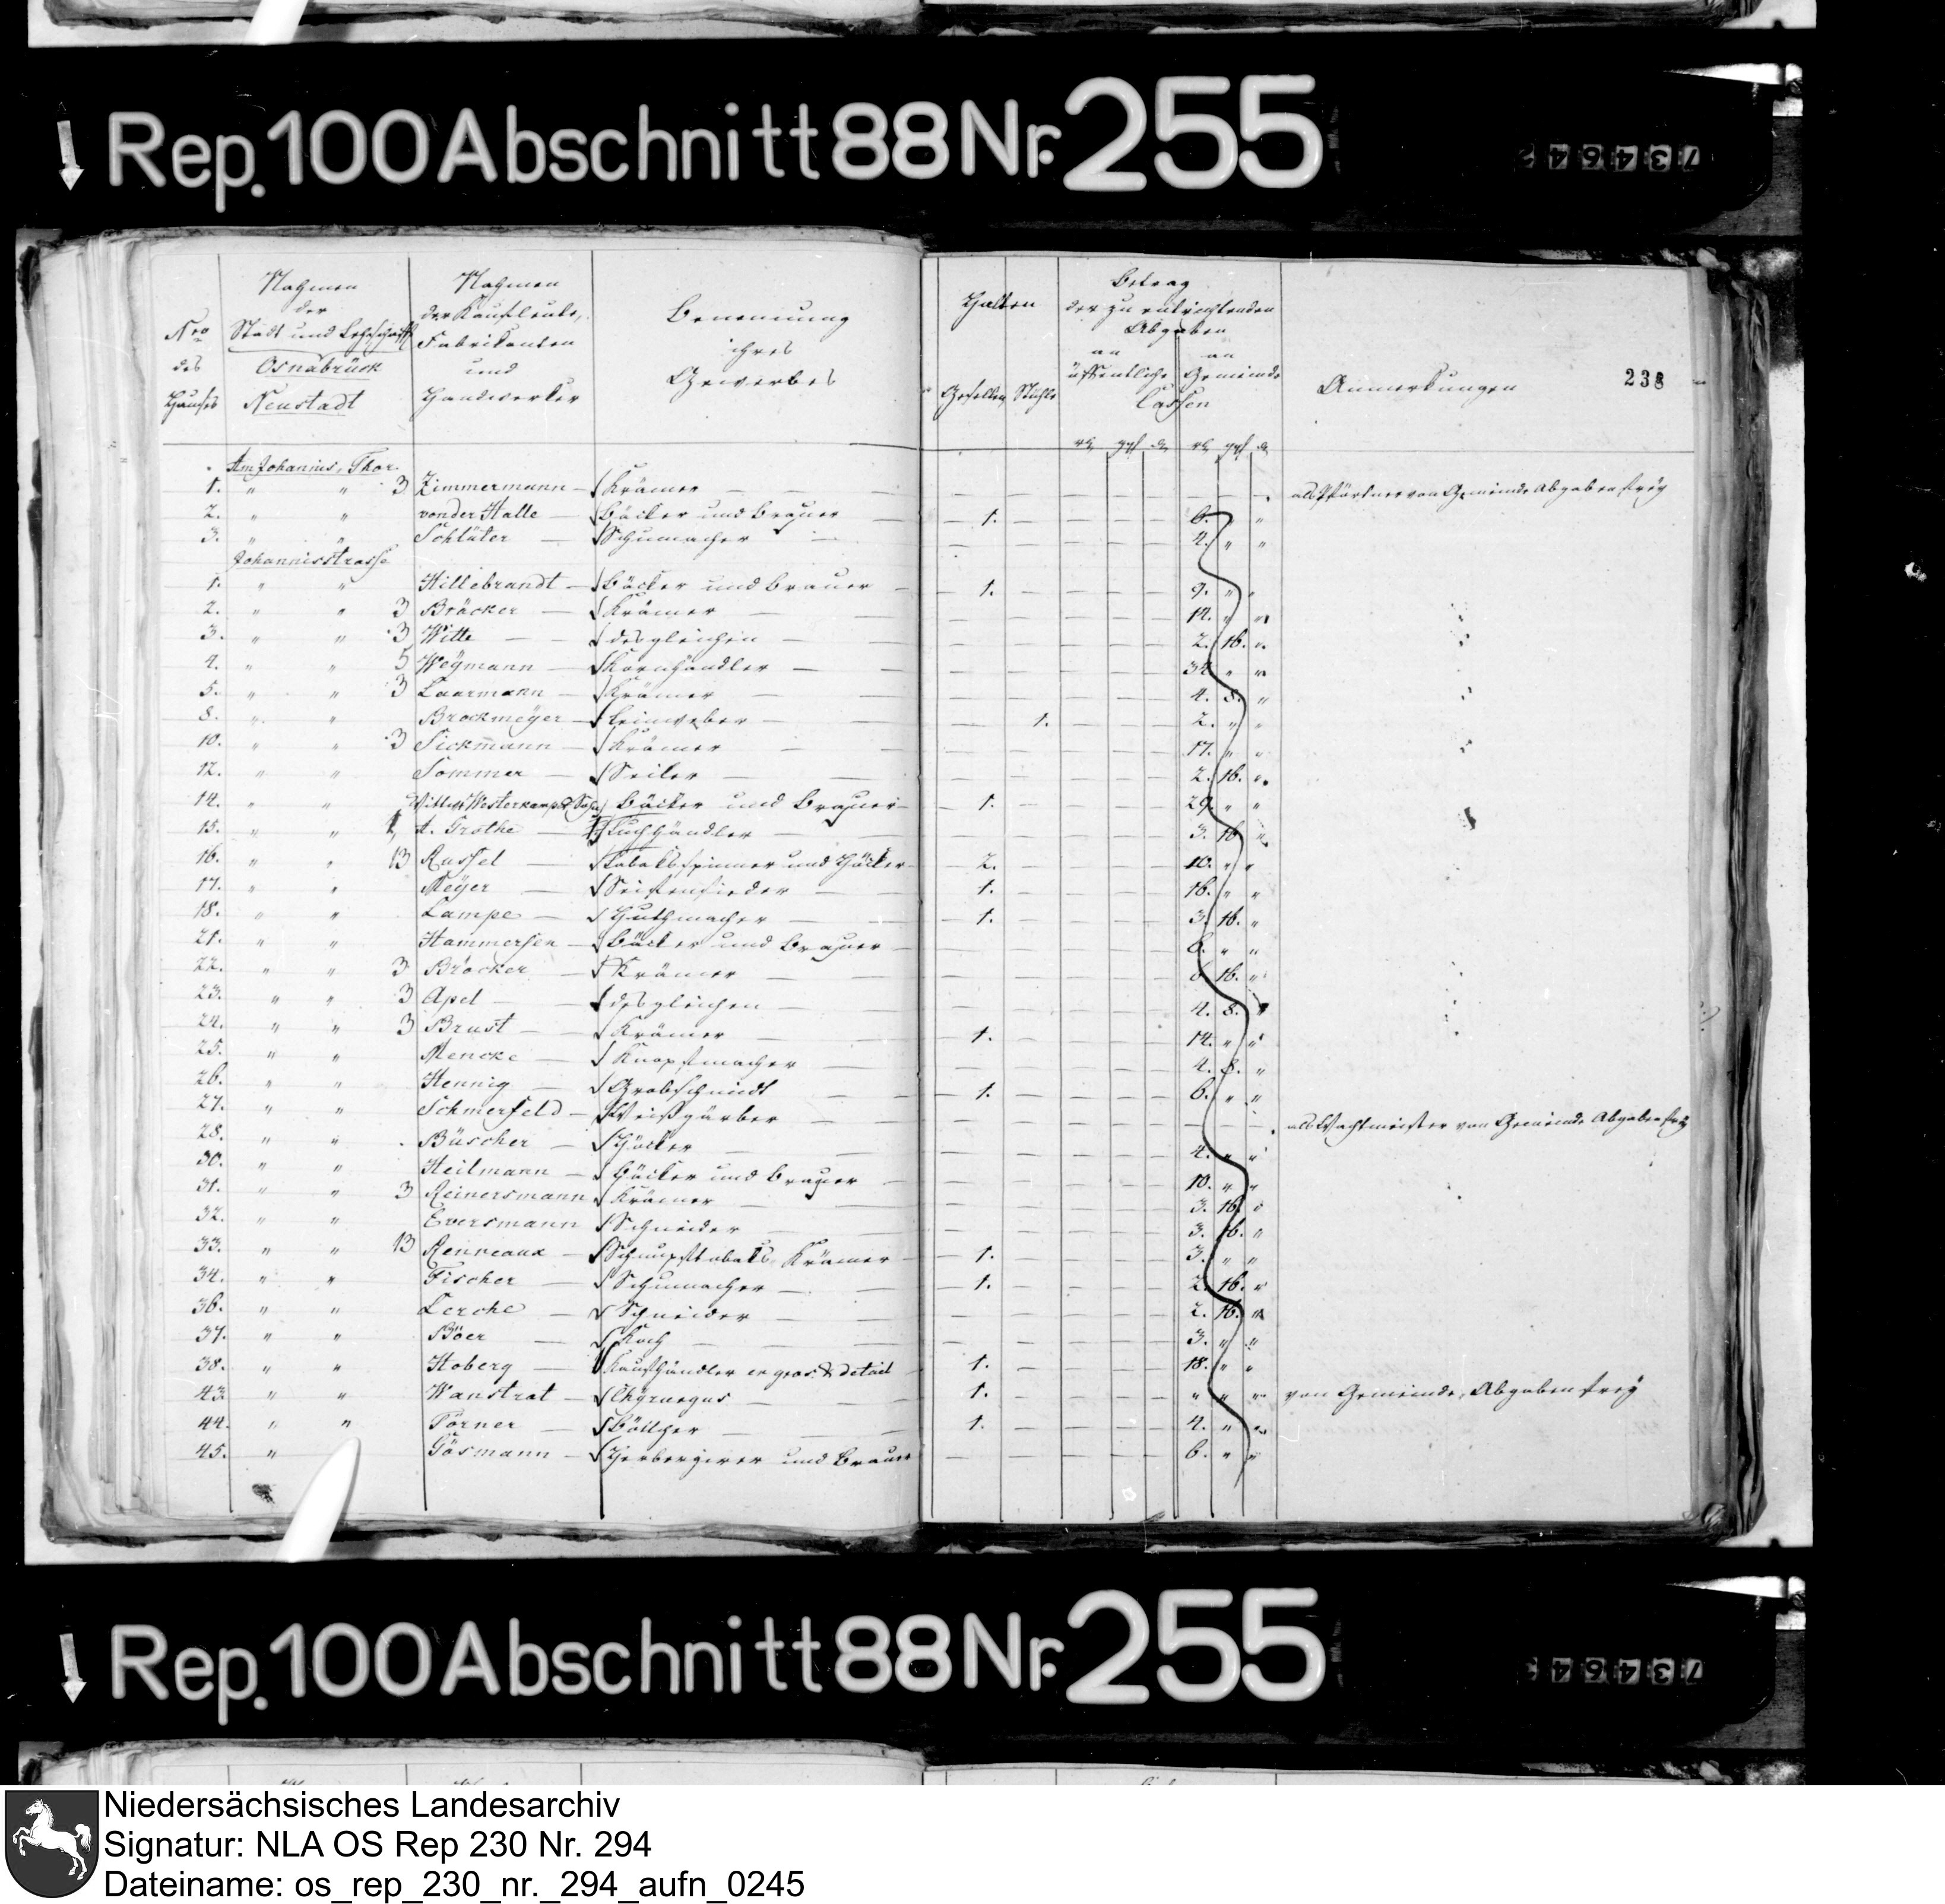 Rep. 100 Abschnitt 88 Nr. 255
73464
238
Nro des Hauses
Nahmen der Stadt und Osnabrück Neustadt
Nahmen der Kaufleute, Fabrikanten und Handwerker
Benennung ihres Gewerbes
Halten Gesellen Stühle
Betrag der zu entrichtenden Abgaben an öffentliche an Gemeinde Cassen
Anmerkungen
Am Johannis Thor
1. " " 3 Zimmermann – Krämer – als Pförtner von Gemeinde Abgaben frey
2. " " von der Halle – Bäcker und Brauer – 1. – 6. " "
3. " " Schlüter – Schumacher – 4. " "
Johannisstrasse
1. " " Hillebrandt – Bäcker und Brauer – 1. – 9. " "
2. " " 3 Bräcker – Krämer – 14. " "
3. " " 3 Witte – desgleichen – 2. 16. "
4. " " 5 Weÿmann – Kornhändler – " "
5. " " 3 Laarmann – Krämer – 4. 8. "
8. " " Brockmeÿer – Leinweber – 1. – 2. " "
10. " " 3 Sickmann – Krämer – 17. " "
12. " " Sommer – Seiler – 2. 16. "
14. " " Wittwe Westerkamp & Bäcker und Brauer – 1. – 29. " "
15. " " A. Grothe – – 3. 16. "
16. " " 13 Russel – Tabakspinner und Höcker – 2. – 10. " "
17. " " Meÿer – Seifensieder – 1. – 16. " "
18. " " Lampe – Huthmacher – 1. – 3. 16. "
21. " " Hammersen – Bäcker und Brauer – 6. " "
22. " " 3 Bröcker – Krämer – 6 16. "
23. " " 3 Apel – desgleichen – 4. 8. "
24. " " 3 Brust – Krämer – 1. – 14. " "
25. " " Mencke – Knopfmacher – 4. 8. "
26. " " Hennig – Grobschmidt – 1. – 6. " "
27. " " Schmerfeld – Weißgärber – als Wachtmeister von Gemeinde Abgaben frey
28. " " Büscher – Höcker – 4. " "
30. " " Heilmann – Bäcker und Brauer – 10. " "
31. " " 3 Reinersmann Krämer – 3. 16. "
32. " " Eversmann Schneider – 3. 16. "
33. " " 13 Renneaux – Schnupftabaks Krämer – 1. – 3. " "
34. " " Fischer – Schumacher – 1. – 2. 16. "
36. " " Lerche – Schneider – 2. 16. "
37. " " Böer – Koch – 3. " "
38. " " Hoberg – Kaufhändler en gros & detail – 1. – 18. " "
43. " " Wanstrat – Chÿrurgus – 1. – " " " von Gemeinde Abgaben frey
44. " " Törner – Böttcher – 1. – 4. " "
45. " Gösmann – Herbergirer und Brauer – 6. " "
Rep. 100 Abschnitt 88 Nr. 255
73464
Niedersächsisches Landesarchiv
Signatur: NLA OS Rep 230 Nr. 294
Dateiname: os_rep_230_nr._294_aufn_0245